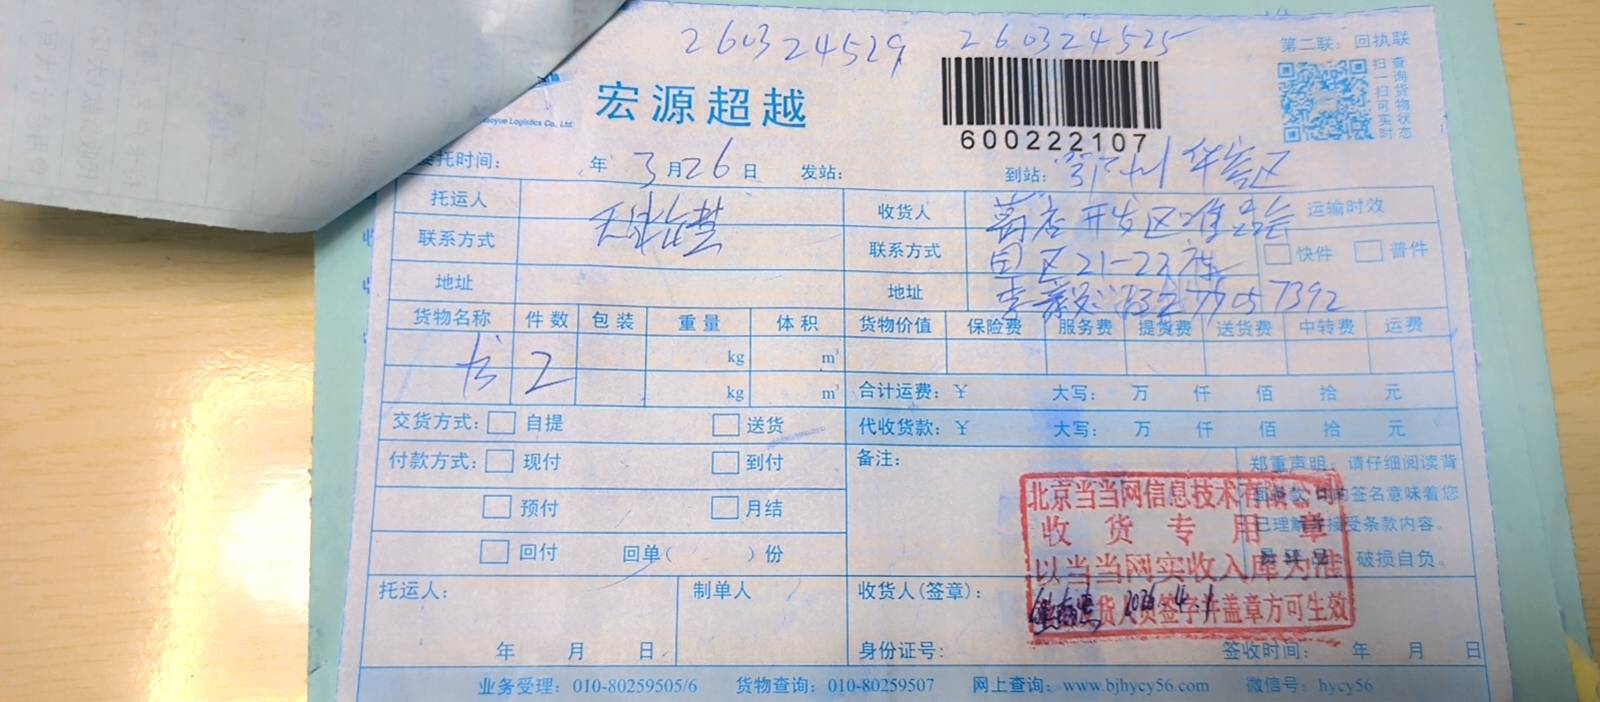 260324529 260324525
第二联：回执联
扫一扫可实时
查询货物状态
宏源超越
Logistics Co., Ltd.
600222107
托时间： 年 3月26日 发站： 到站：鄂州华容区
托运人 收货人 葛店开发区唯品会 运输时效
联系方式 联系方式 园区21-23库 快件 普件
地址 地址
货物名称 件数 包装 重量 体积 货物价值 保险费 服务费 提货费 送货费 中转费 运费
书 2 kg m³
kg m³ 合计运费：￥ 大写： 万 仟 佰 拾 元
交货方式： 自提 送货 代收货款：￥ 大写： 万 仟 佰 拾 元
付款方式： 现付 到付 备注： 郑重声明：请仔细阅读背
预付 月结 的签名意味着您
已理解 接受条款内容。
回付 回单（ ）份 破损自负。
北京当当网信息技术有限公司
收货专用章
以当当网实收入库为准
货人员签字并盖章方可生效
2026.4.1
托运人： 制单人 收货人(签章)：
年 月 日 身份证号： 签收时间： 年 月 日
业务受理：010-80259505/6 货物查询：010-80259507 网上查询：www.bjhycy56.com 微信号：hycy56